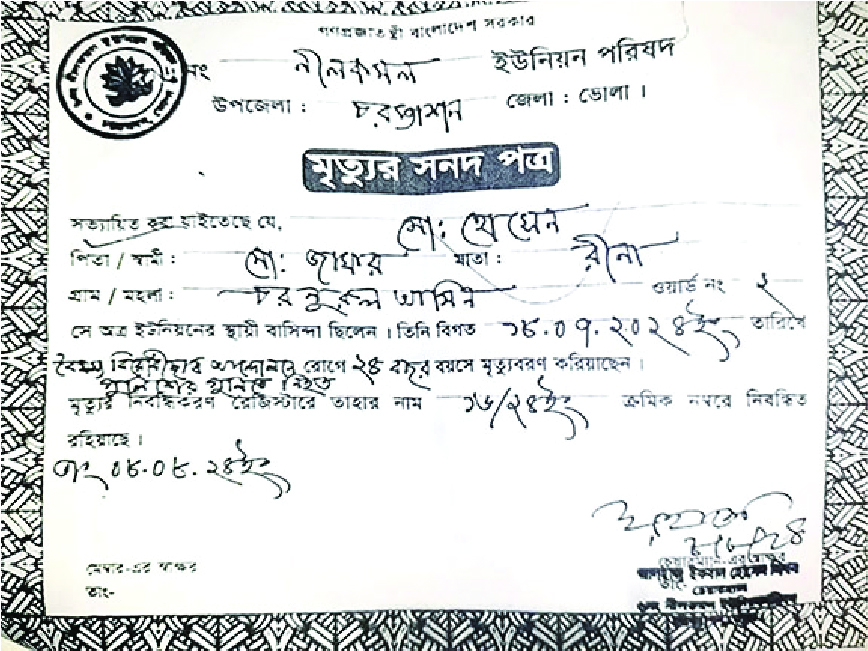 গণপ্রজাতন্ত্রী বাংলাদেশ সরকার
নং নীলকমল ইউনিয়ন পরিষদ
উপজেলা : চরফ্যাশন জেলা : ভোলা ।
মৃত্যুর সনদ পত্র
সত্যায়িত করা যাইতেছে যে, মো: হোসেন
পিতা / স্বামী : মো: মাতা : রীনা
গ্রাম / মহলা : চর নুরুল আমিন ওয়ার্ড নং ২
সে অত্র ইউনিয়নের স্থায়ী বাসিন্দা ছিলেন । তিনি বিগত ১৮.০৭.২০২৪ইং তারিখে
বৈষম্য বিরোধী ছাত্র রোগে ২৪ বছর বয়সে মৃত্যুবরণ করিয়াছেন ।
পুলিশের গুলিতে নিহত
মৃত্যুর নিবন্ধিকরণ রেজিস্টারে তাহার নাম ১৬/২৪ইং ক্রমিক নম্বরে নিবন্ধিত
রহিয়াছে ।
তাং ০৮.০৮.২৪ইং
মেম্বার-এর স্বাক্ষর
তাং-
চেয়ারম্যান-এর স্বাক্ষর
ইকবাল হোসেন
তাং- চেয়ারম্যান